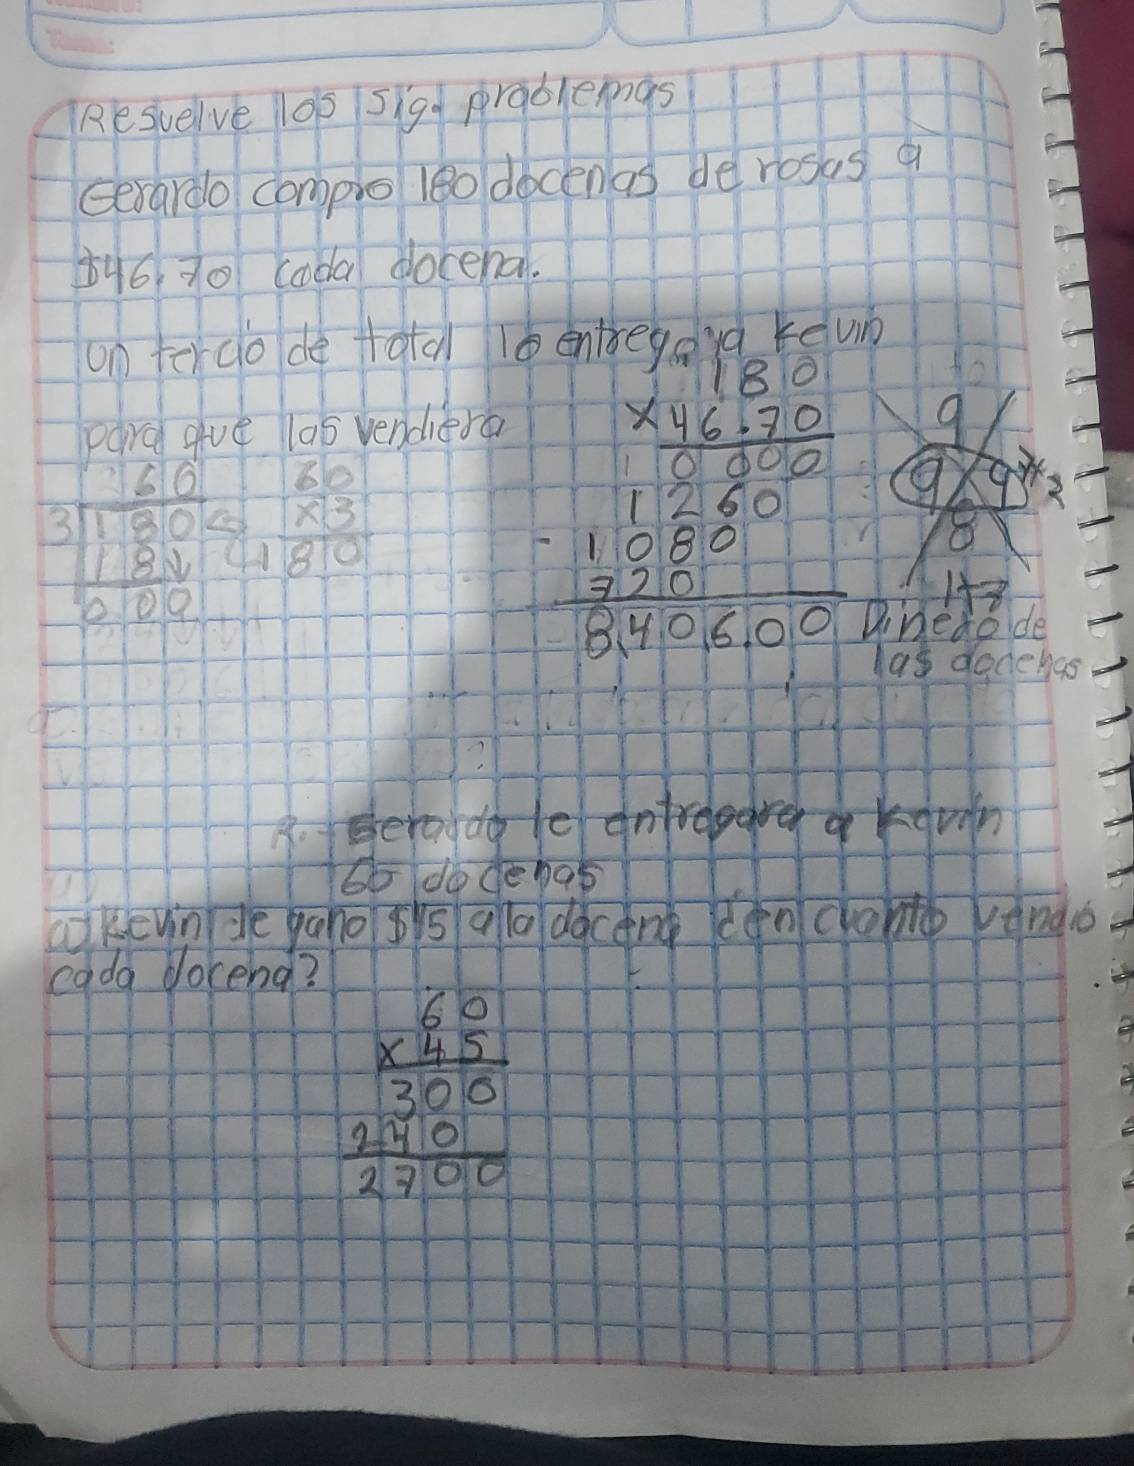 Resuelve los sig. problemas
Gerardo compro 180 docenas de rosas a
$46.70 cada docena.
un tercio de total lo entrego a Kevin
para que las vendiera
60
3 180
18
009
60
x3
180
180
x 46.70
0 000
1260
1080
720
8,406.00
9
9 9
8
Dinero de
las docenas
R.- Gerardo le entregara a Kevin
60 docenas
a) Kevin le gano $45 a la docena ¿en cuanto vendio
cada docena?
60
x 45
300
240
2700